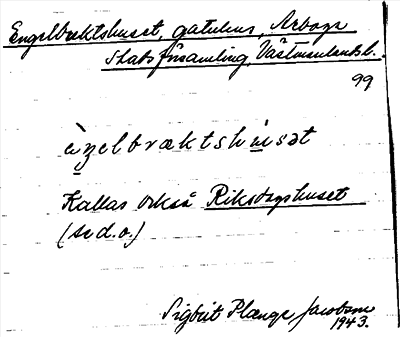 Engelbrektshuset, gatuhus, Arboga
Stadsförsamling, Västmanlands l.
99
èŋelbræktshùsət
Kallas också Riksdagshuset
(se d.o.)
Sigbrit Plænge Jacobson
1943.